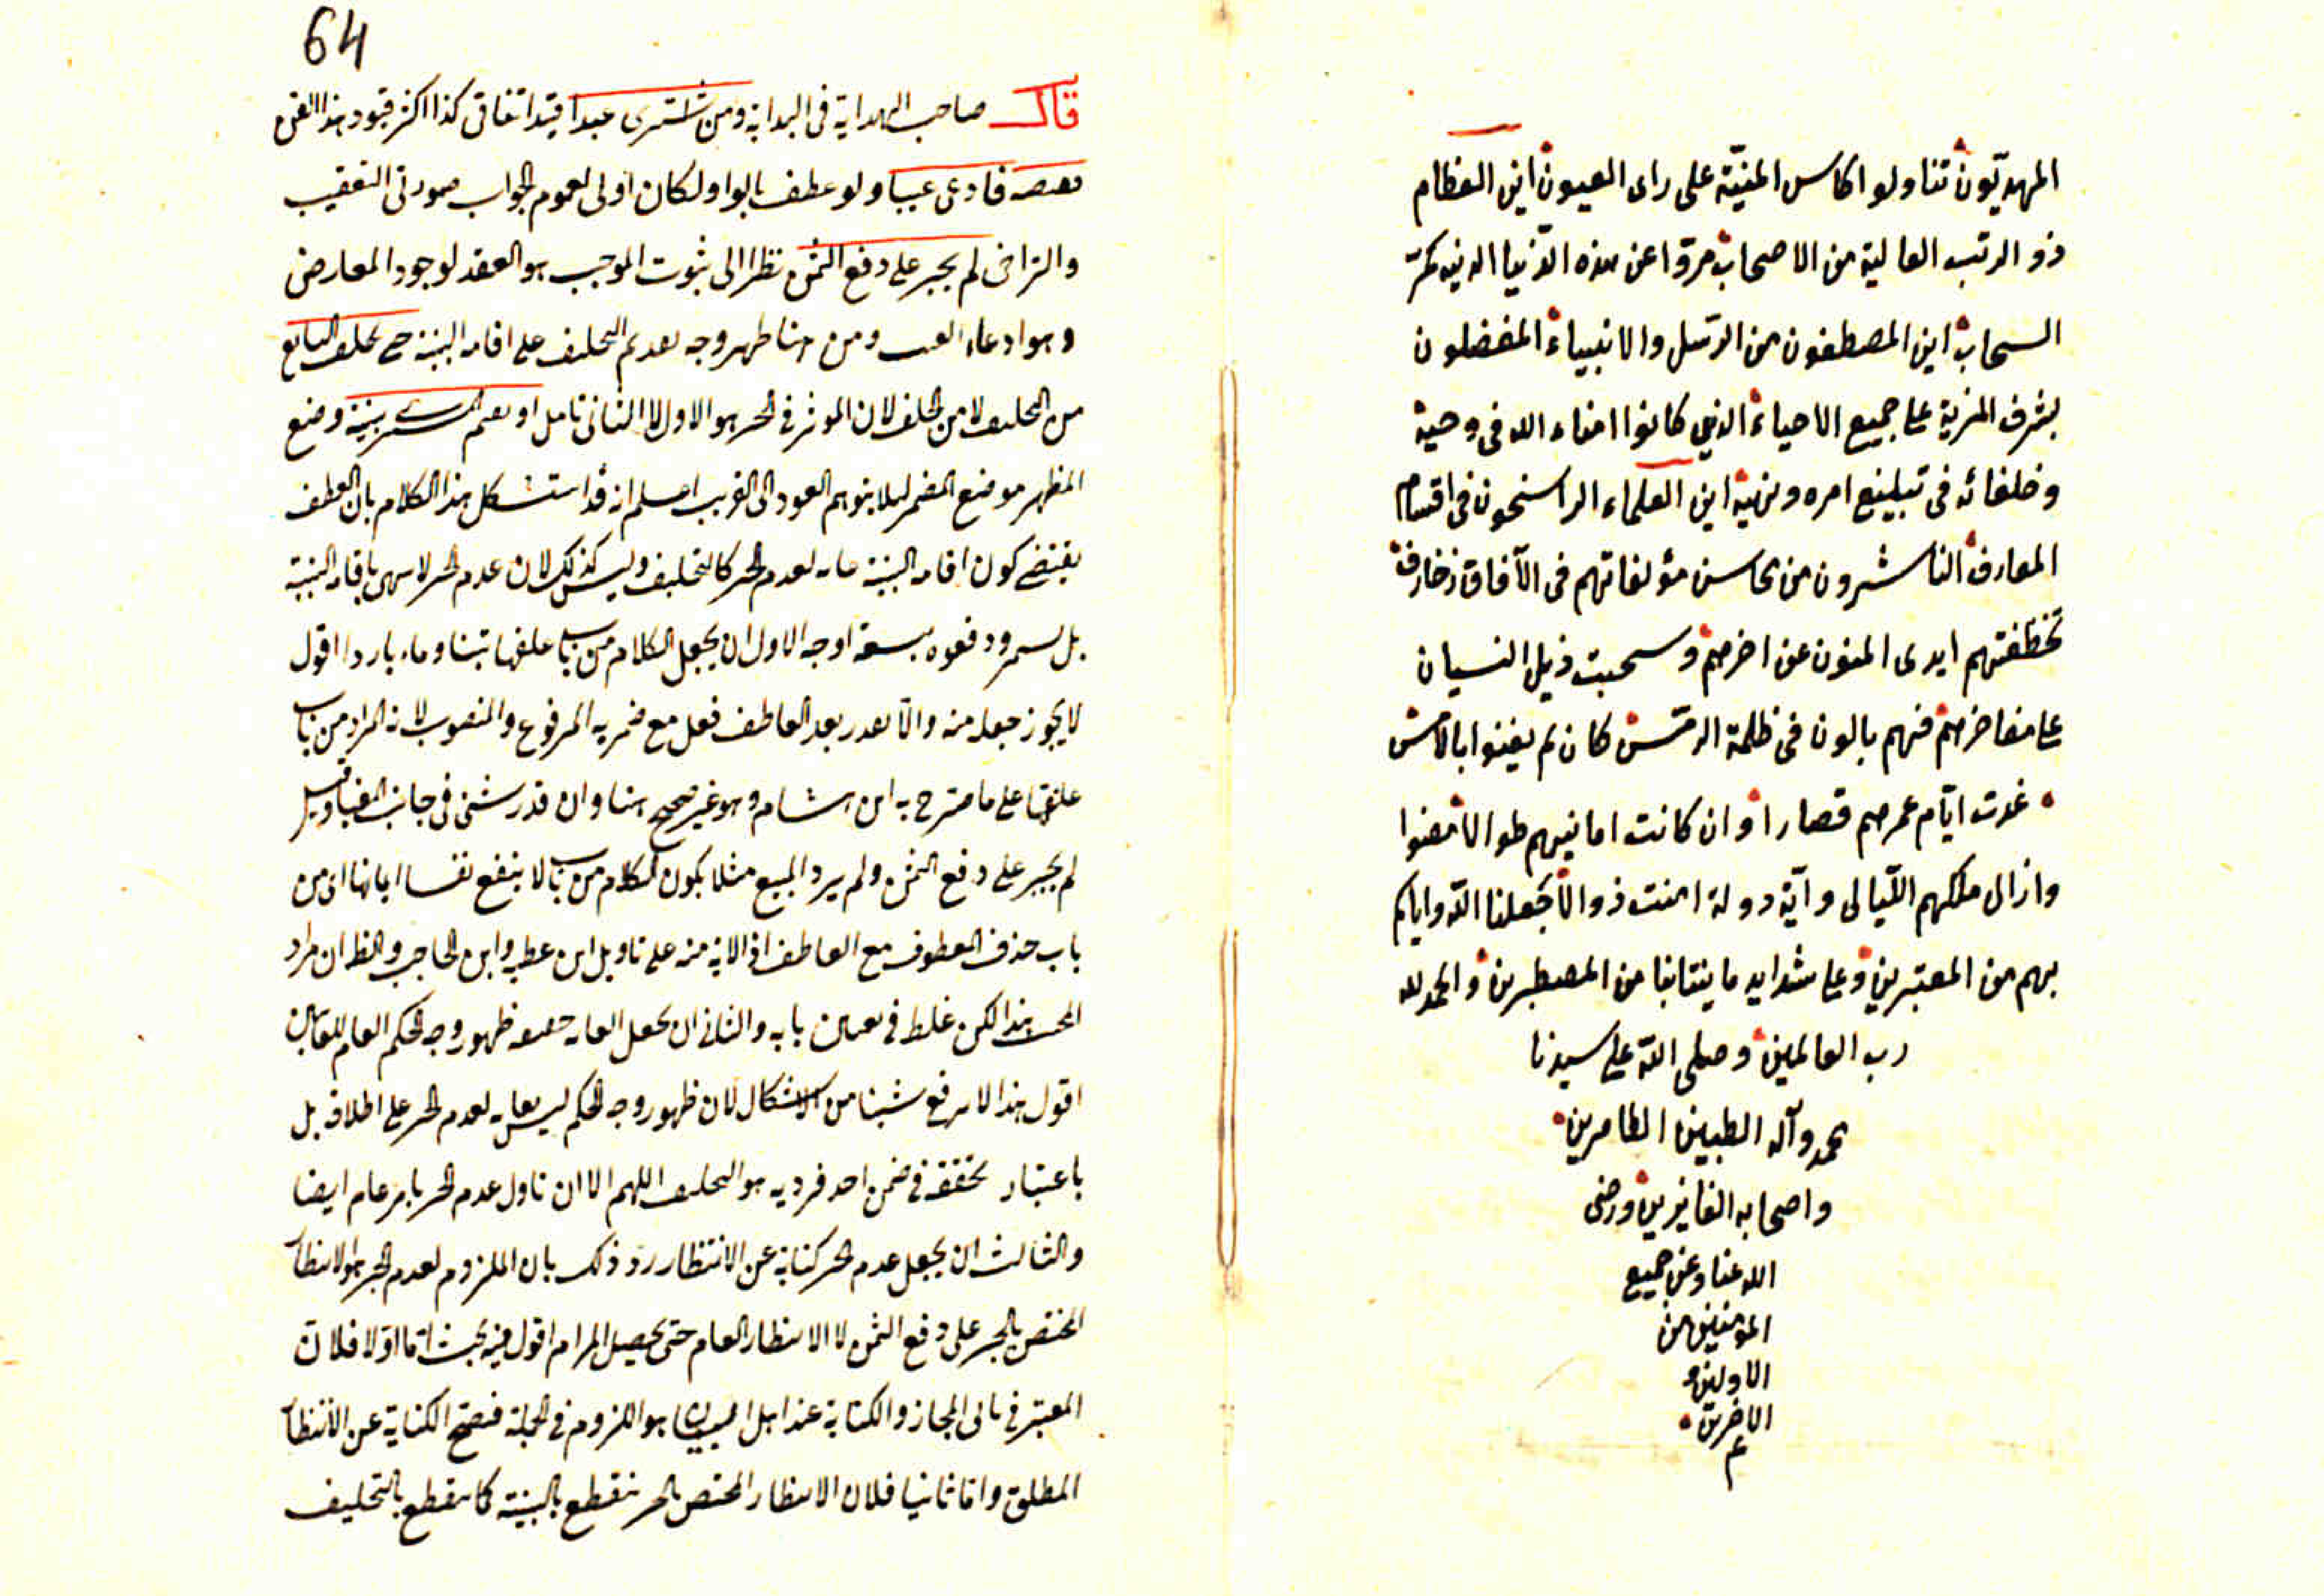 المهديّون تناولوا كاس المنيّة على راى العيون اين العظام
ذو الرتب العالية من الاصحاب مرّوا عن هذه الدّنيا الدنيه كمرّ
السحاب اين المصطفون من الرّسل والانبياء المفضلون
بشرف المزية على جميع الاحياء الذين كانوا امناء الله فى وحيه
وخلفائه فى تبليغ امره ونهيه اين العلماء الراسخون فى اقسام
المعارف الناشرون من محاسن مؤلفاتهم فى الآفاق زخارف
تخطفتهم ايدى المنون عن اخرهم وسحبت ذيل النسيان
على مفاخرهم فهم بالون فى ظلمة الرمس كان لم يغنوا بالامس
غدت ايّام عمرهم قصارا وان كانت امانيهم طوالا مضوا
وازال ملكهم اللّيالى واّية دولة امنت زوالا جعلنا الله واياكم
بهم من المعتبرين وعلى شدايد ما ينتابنا من المصطبرين والحمد لله
رب العالمين وصلى الله على سيدنا
محمد وآله الطيبين الطاهرين
واصحابه الفايزين ورضى
الله عنا وعن جميع
المومنين من
الاولين و
الاخرين
م
64
قال صاحب الهداية فى البداية ومن اشترى عبدا قيد اتفاقى كذا اكثر قيود هذا الفن
فقبضه فادعى عيبا ولو عطف بالواو لكان اولى لعموم الجواب صورتى التعقيب
والتراخى لم يجبر على دفع الثمن نظرا الى ثبوت الموجب هو العقد لوجود المعارض
وهو ادعاء العيب ومن هنا ظهر وجه تقديم التحليف على اقامة البينة حتى يحلف البايع
من التحليف لا من الحلف لان الموثر فى الجبر هو الاول لا الثانى تامل او يقيم المشترى بينة وضع
المظهر موضع المضمر ليلا يتوهم العود الى القريب اعلم انه قد استشكل هذا الكلام بان العطف
يقتضى كون اقامة البينة غاية لعدم الجبر كالتحليف وليس كذلك لان عدم الجبر لا ينتهى باقامة البينة
بل يستمر ودفعوه بسبعة اوجه الاول ان يجعل الكلام من باب علفها تبنا وماء باردا اقول
لا يجوز جعله منه والا لقدر بعد العاطف فعل مع ضميريه المرفوع والمنصوب لانه المراد من باب
علفتها على ما صرح به ابن هشام وهو غير صحيح هنا وان قدر شئ فى جانب المغيا وقيل
لم يجبر على دفع الثمن ولم يرد المبيع مثلا يكون الكلام من باب لا ينفع نفسا ايمانها اى من
باب حذف المعطوف مع العاطف اذ الاية منه على تاويل ابن عطية وابن الحاجب والظ ان مراد
المجيب هذا لكن غلط فى تعيين بابه والثانى ان يجعل الغاية حقيقة ظهور وجه الحكم العام للغايتين
اقول هذا لا يرفع شيئا من الاشكال لان ظهور وجه الحكم ليس بغاية لعدم الجبر على اطلاقه بل
باعتبار تحققه فى ضمن احد فرديه هو التحليف اللهم الا ان تاول عدم الجبر بامر عام ايضا
والثالث ان يجعل عدم الجبر كناية عن الانتظار رد ذلك بان الملزوم لعدم الجبر هو الانتظار
المختص بالجبر على دفع الثمن لا الانتظار العام حتى يحصل المرام اقول فيه بحث اما اولا فلان
المعتبر فى بابى المجاز والكناية عند اهل البيان هو اللزوم فى الجملة فتصح الكناية عن الانتظار
المطلق واما ثانيا فلان الانتظار المختص بالجبر ينقطع بالبينة كما ينقطع بالتحليف